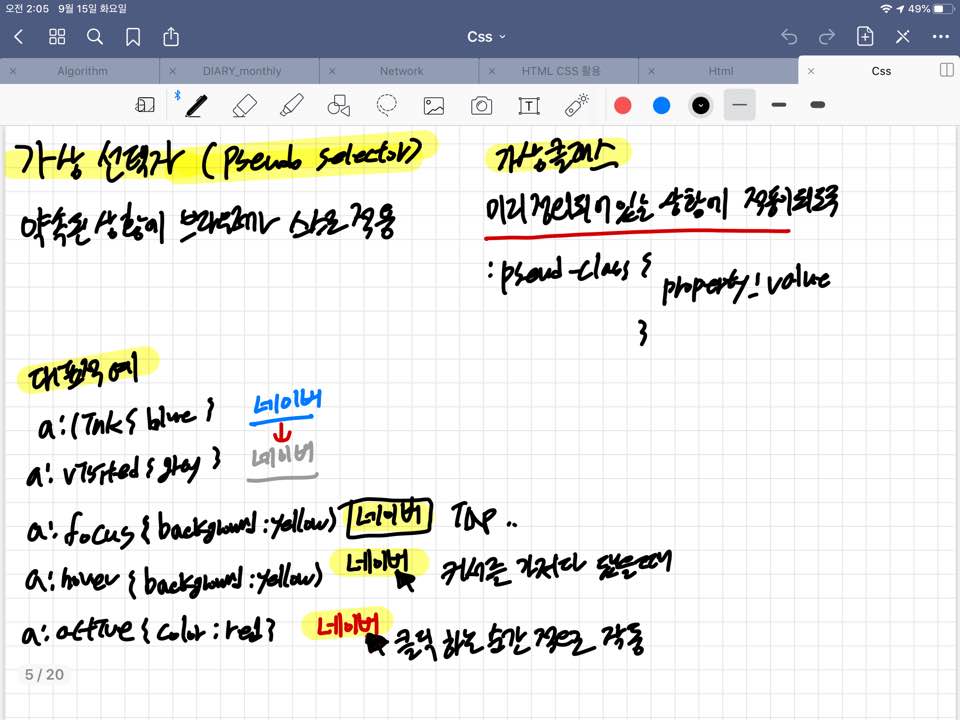 오전 2:05 9월 15일 화요일
49%
Css
Algorithm
DIARY_monthly
Network
HTML CSS 활용
Html
Css
가상 선택자 (pseudo selector)
약속된 상황에 브라우저가 스스로 적용
가상클래스
미리 정의되어 있는 상황에 적용이되도록
:pseud-class {
property : value
}
대표적 예
a:link { blue }
네이버
a:visited { gray }
네이버
a:focus { background:yellow) 네이버 Tap ..
a:hover { background:yellow) 네이버 커서를 가져다 댔을때
a:active { color:red } 네이버 클릭 하는 순간 작동
5 / 20